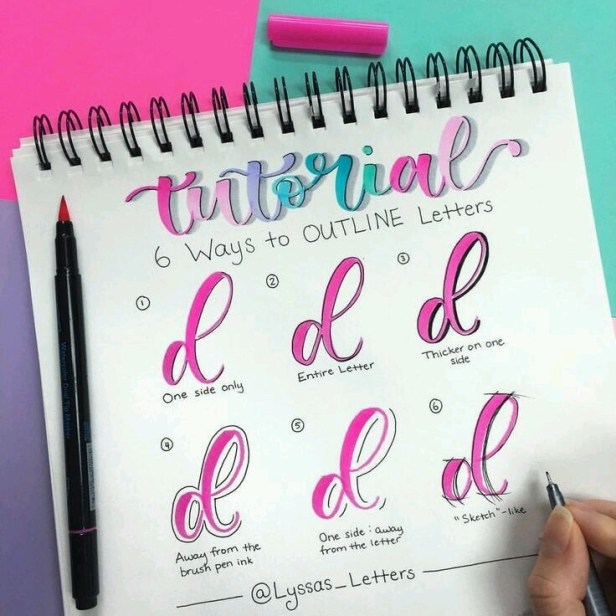 tutorial
6 Ways to OUTLINE Letters
1
d
One side only
2
d
Entire Letter
3
d
Thicker on one
side
4
d
Away from the
brush pen ink
5
d
One side : away
from the letter
6
d
"Sketch"-like
@Lyssas_Letters